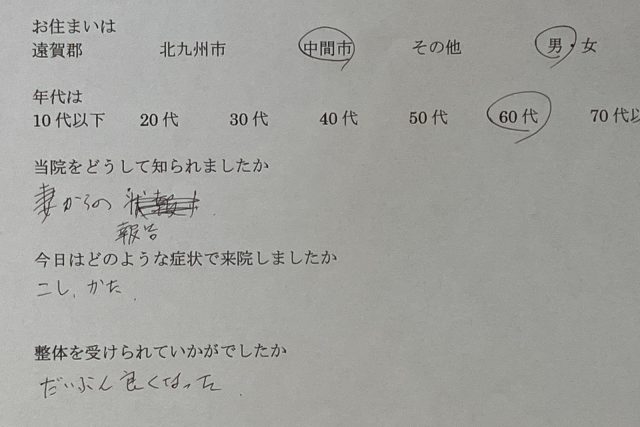 お住まいは
遠賀郡 北九州市 中間市 その他 男・女
年代は
10代以下 20代 30代 40代 50代 60代 70代以
当院をどうして知られましたか
妻からの
報告
今日はどのような症状で来院しましたか
こし、かた、
整体を受けられていかがでしたか
だいぶん良くなった.